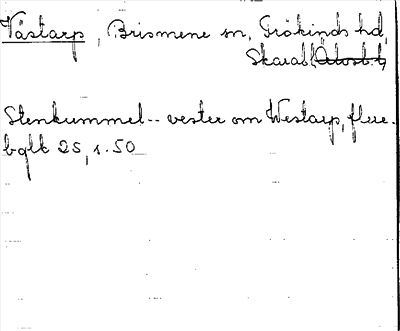 Västarp, Brismene sn, Frökinds hd,
Skarab.l.
Stenkummel -- vester om Westarp, flere.
bglk 25, s. 50